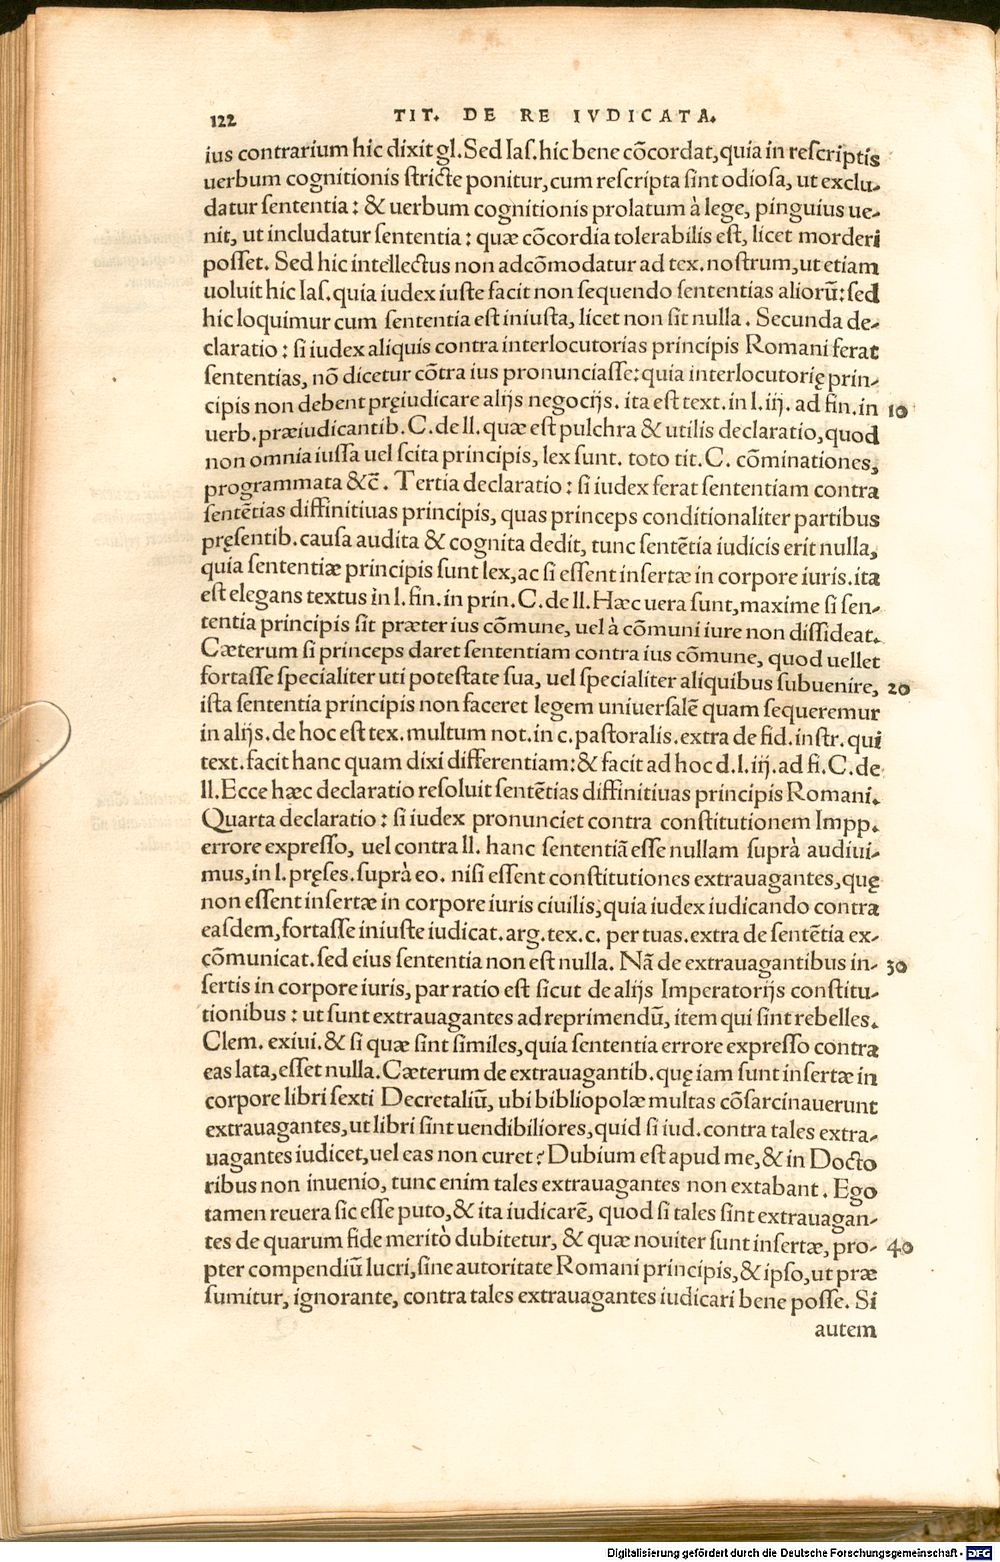 122 TIT. DE RE IVDICATA.
ius contrarium hic dixit gl. Sed Ias. hic bene cõcordat, quia in rescriptis
uerbum cognitionis stricte ponitur, cum rescripta sint odiosa, ut exclu-
datur sententia: & uerbum cognitionis prolatum à lege, pinguius ue-
nit, ut includatur sententia: quæ cõcordia tolerabilis est, licet morderi
posset. Sed hic intellectus non adcõmodatur ad tex. nostrum, ut etiam
uoluit hic Ias. quia iudex iuste facit non sequendo sententias aliorũ: sed
hic loquimur cum sententia est iniusta, licet non sit nulla. Secunda de-
claratio: si iudex aliquis contra interlocutorias principis Romani ferat
sententias, nõ dicetur cõtra ius pronunciasse: quia interlocutorię prin-
cipis non debent pręiudicare alijs negocijs. ita est text. in l. iij. ad fin. in 10
uerb. præiudicantib. C. de ll. quæ est pulchra & utilis declaratio, quod
non omnia iussa uel scita principis, lex sunt. toto tit. C. cõminationes,
programmata &c̃. Tertia declaratio: si iudex ferat sententiam contra
sentẽtias diffinitiuas principis, quas princeps conditionaliter partibus
pręsentib. causa audita & cognita dedit, tunc sentẽtia iudicis erit nulla,
quia sententiæ principis sunt lex, ac si essent insertæ in corpore iuris. ita
est elegans textus in l. fin. in prin. C. de ll. Hæc uera sunt, maxime si sen-
tentia principis sit præter ius cõmune, uel à cõmuni iure non dissideat.
Cæterum si princeps daret sententiam contra ius cõmune, quod uellet
fortasse specialiter uti potestate sua, uel specialiter aliquibus subuenire, 20
ista sententia principis non faceret legem uniuersalẽ quam sequeremur
in alijs. de hoc est tex. multum not. in c. pastoralis. extra de fid. instr. qui
text. facit hanc quam dixi differentiam: & facit ad hoc d. l. iij. ad fi. C. de
ll. Ecce hæc declaratio resoluit sentẽtias diffinitiuas principis Romani.
Quarta declaratio: si iudex pronunciet contra constitutionem Impp.
errore expresso, uel contra ll. hanc sententiã esse nullam suprà audiui-
mus, in l. pręses. suprà eo. nisi essent constitutiones extrauagantes, quę
non essent insertæ in corpore iuris ciuilis, quia iudex iudicando contra
easdem, fortasse iniuste iudicat. arg. tex. c. per tuas. extra de sentẽtia ex-
cõmunicat. sed eius sententia non est nulla. Nã de extrauagantibus in- 30
sertis in corpore iuris, par ratio est sicut de alijs Imperatorijs constitu-
tionibus: ut sunt extrauagantes ad reprimendũ, item qui sint rebelles.
Clem. exiui. & si quæ sint similes, quia sententia errore expresso contra
eas lata, esset nulla. Cæterum de extrauagantib. quę iam sunt insertæ in
corpore libri sexti Decretaliũ, ubi bibliopolæ multas cõsarcinauerunt
extrauagantes, ut libri sint uendibiliores, quid si iud. contra tales extra-
uagantes iudicet, uel eas non curet? Dubium est apud me, & in Docto
ribus non inuenio, tunc enim tales extrauagantes non extabant. Ego
tamen reuera sic esse puto, & ita iudicarẽ, quod si tales sint extrauagan-
tes de quarum fide meritò dubitetur, & quæ nouiter sunt insertæ, pro- 40
pter compendiũ lucri, sine autoritate Romani principis, & ipso, ut præ
sumitur, ignorante, contra tales extrauagantes iudicari bene posse. Si
autem
Digitalisierung gefördert durch die Deutsche Forschungsgemeinschaft - DFG